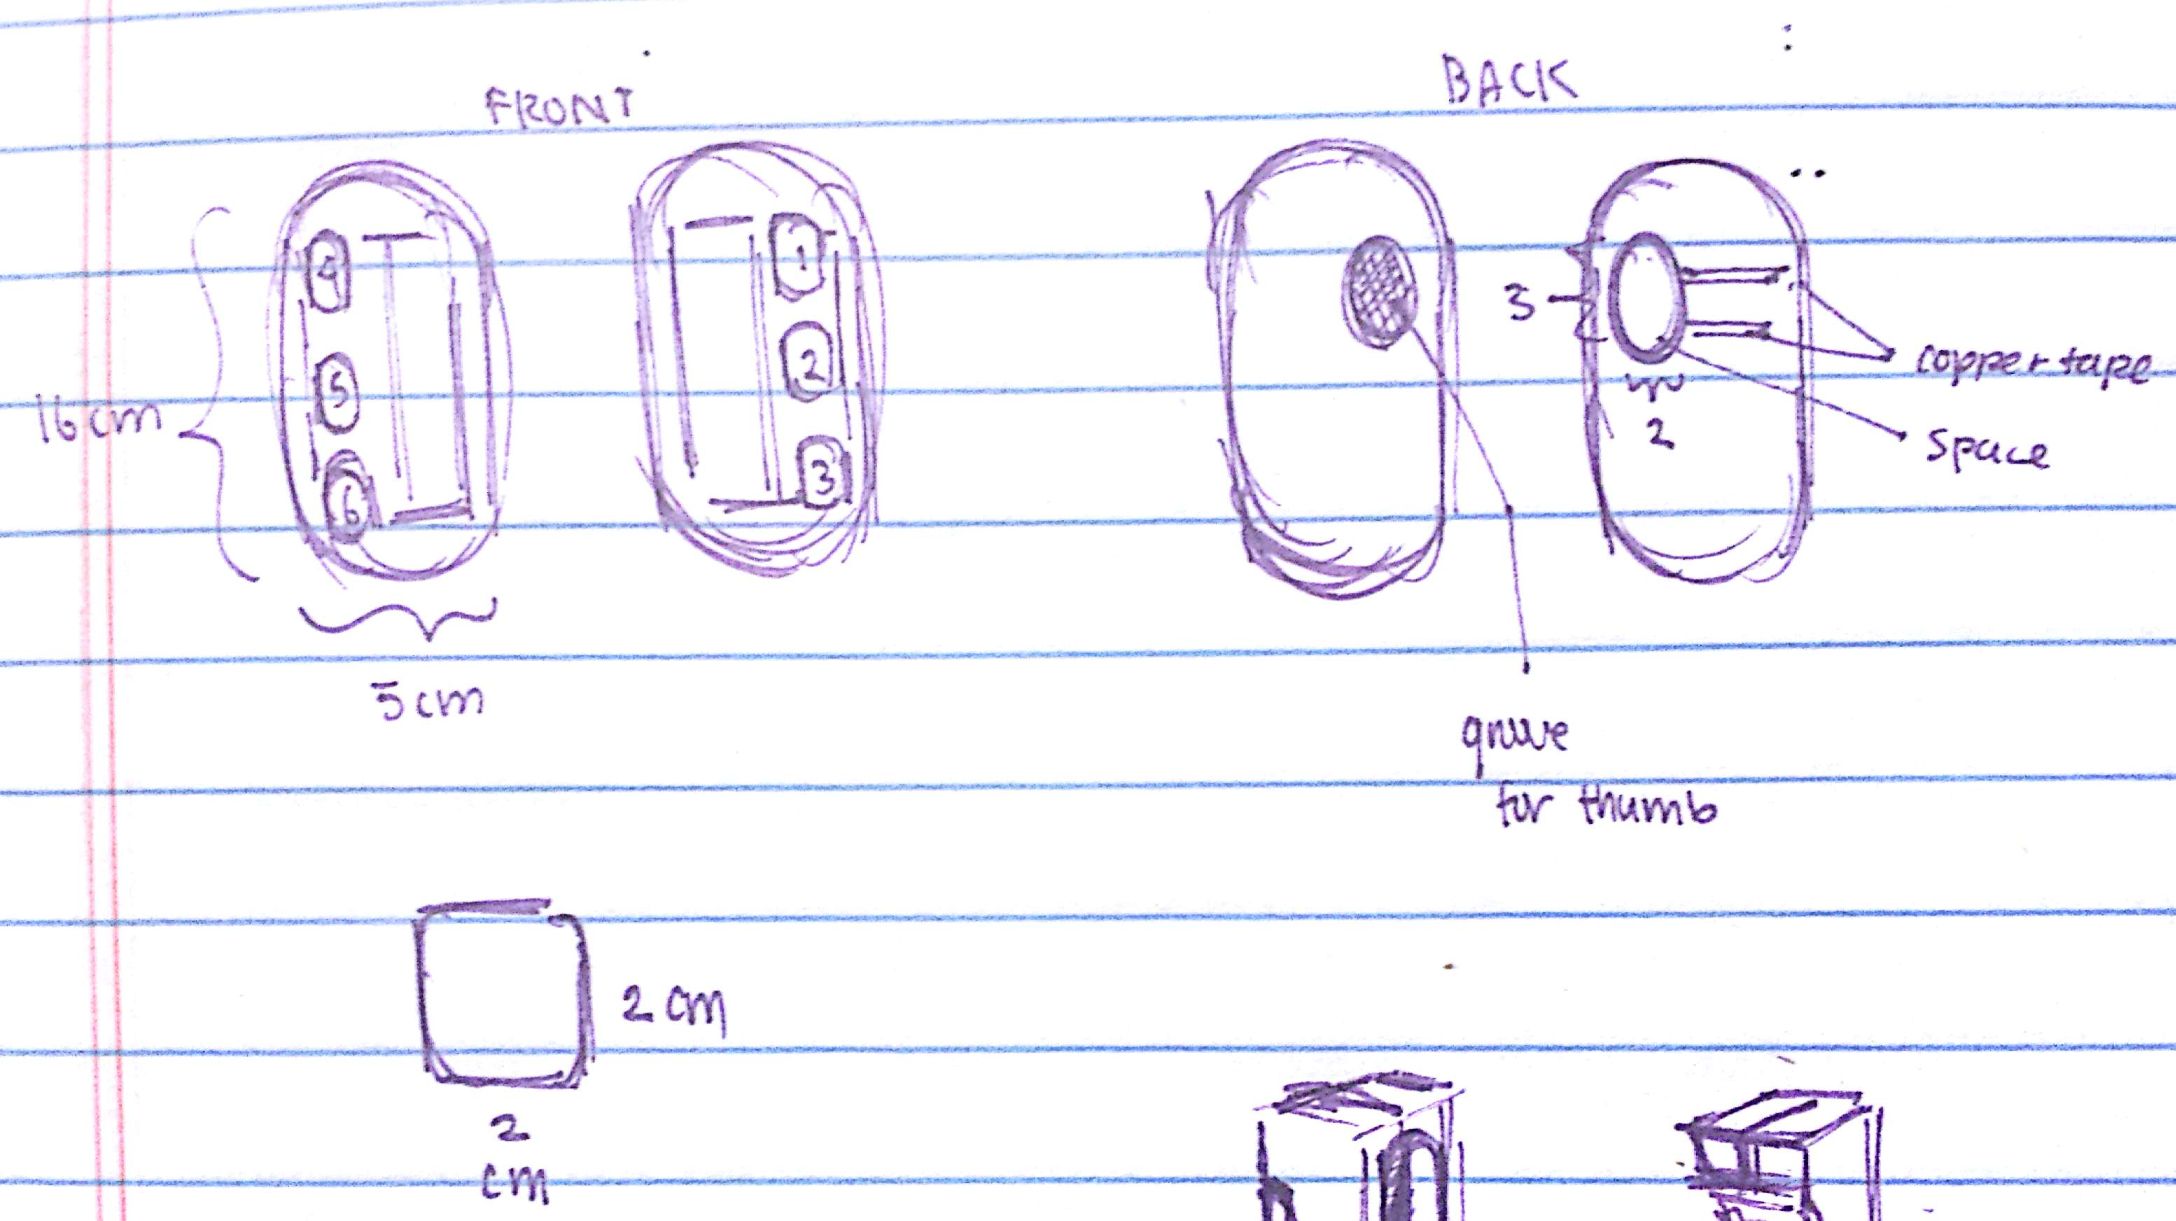 FRONT
BACK
4
5
6
1
2
3
16cm
5cm
3
2
copper tape
space
gruve
for thumb
2 cm
2
cm